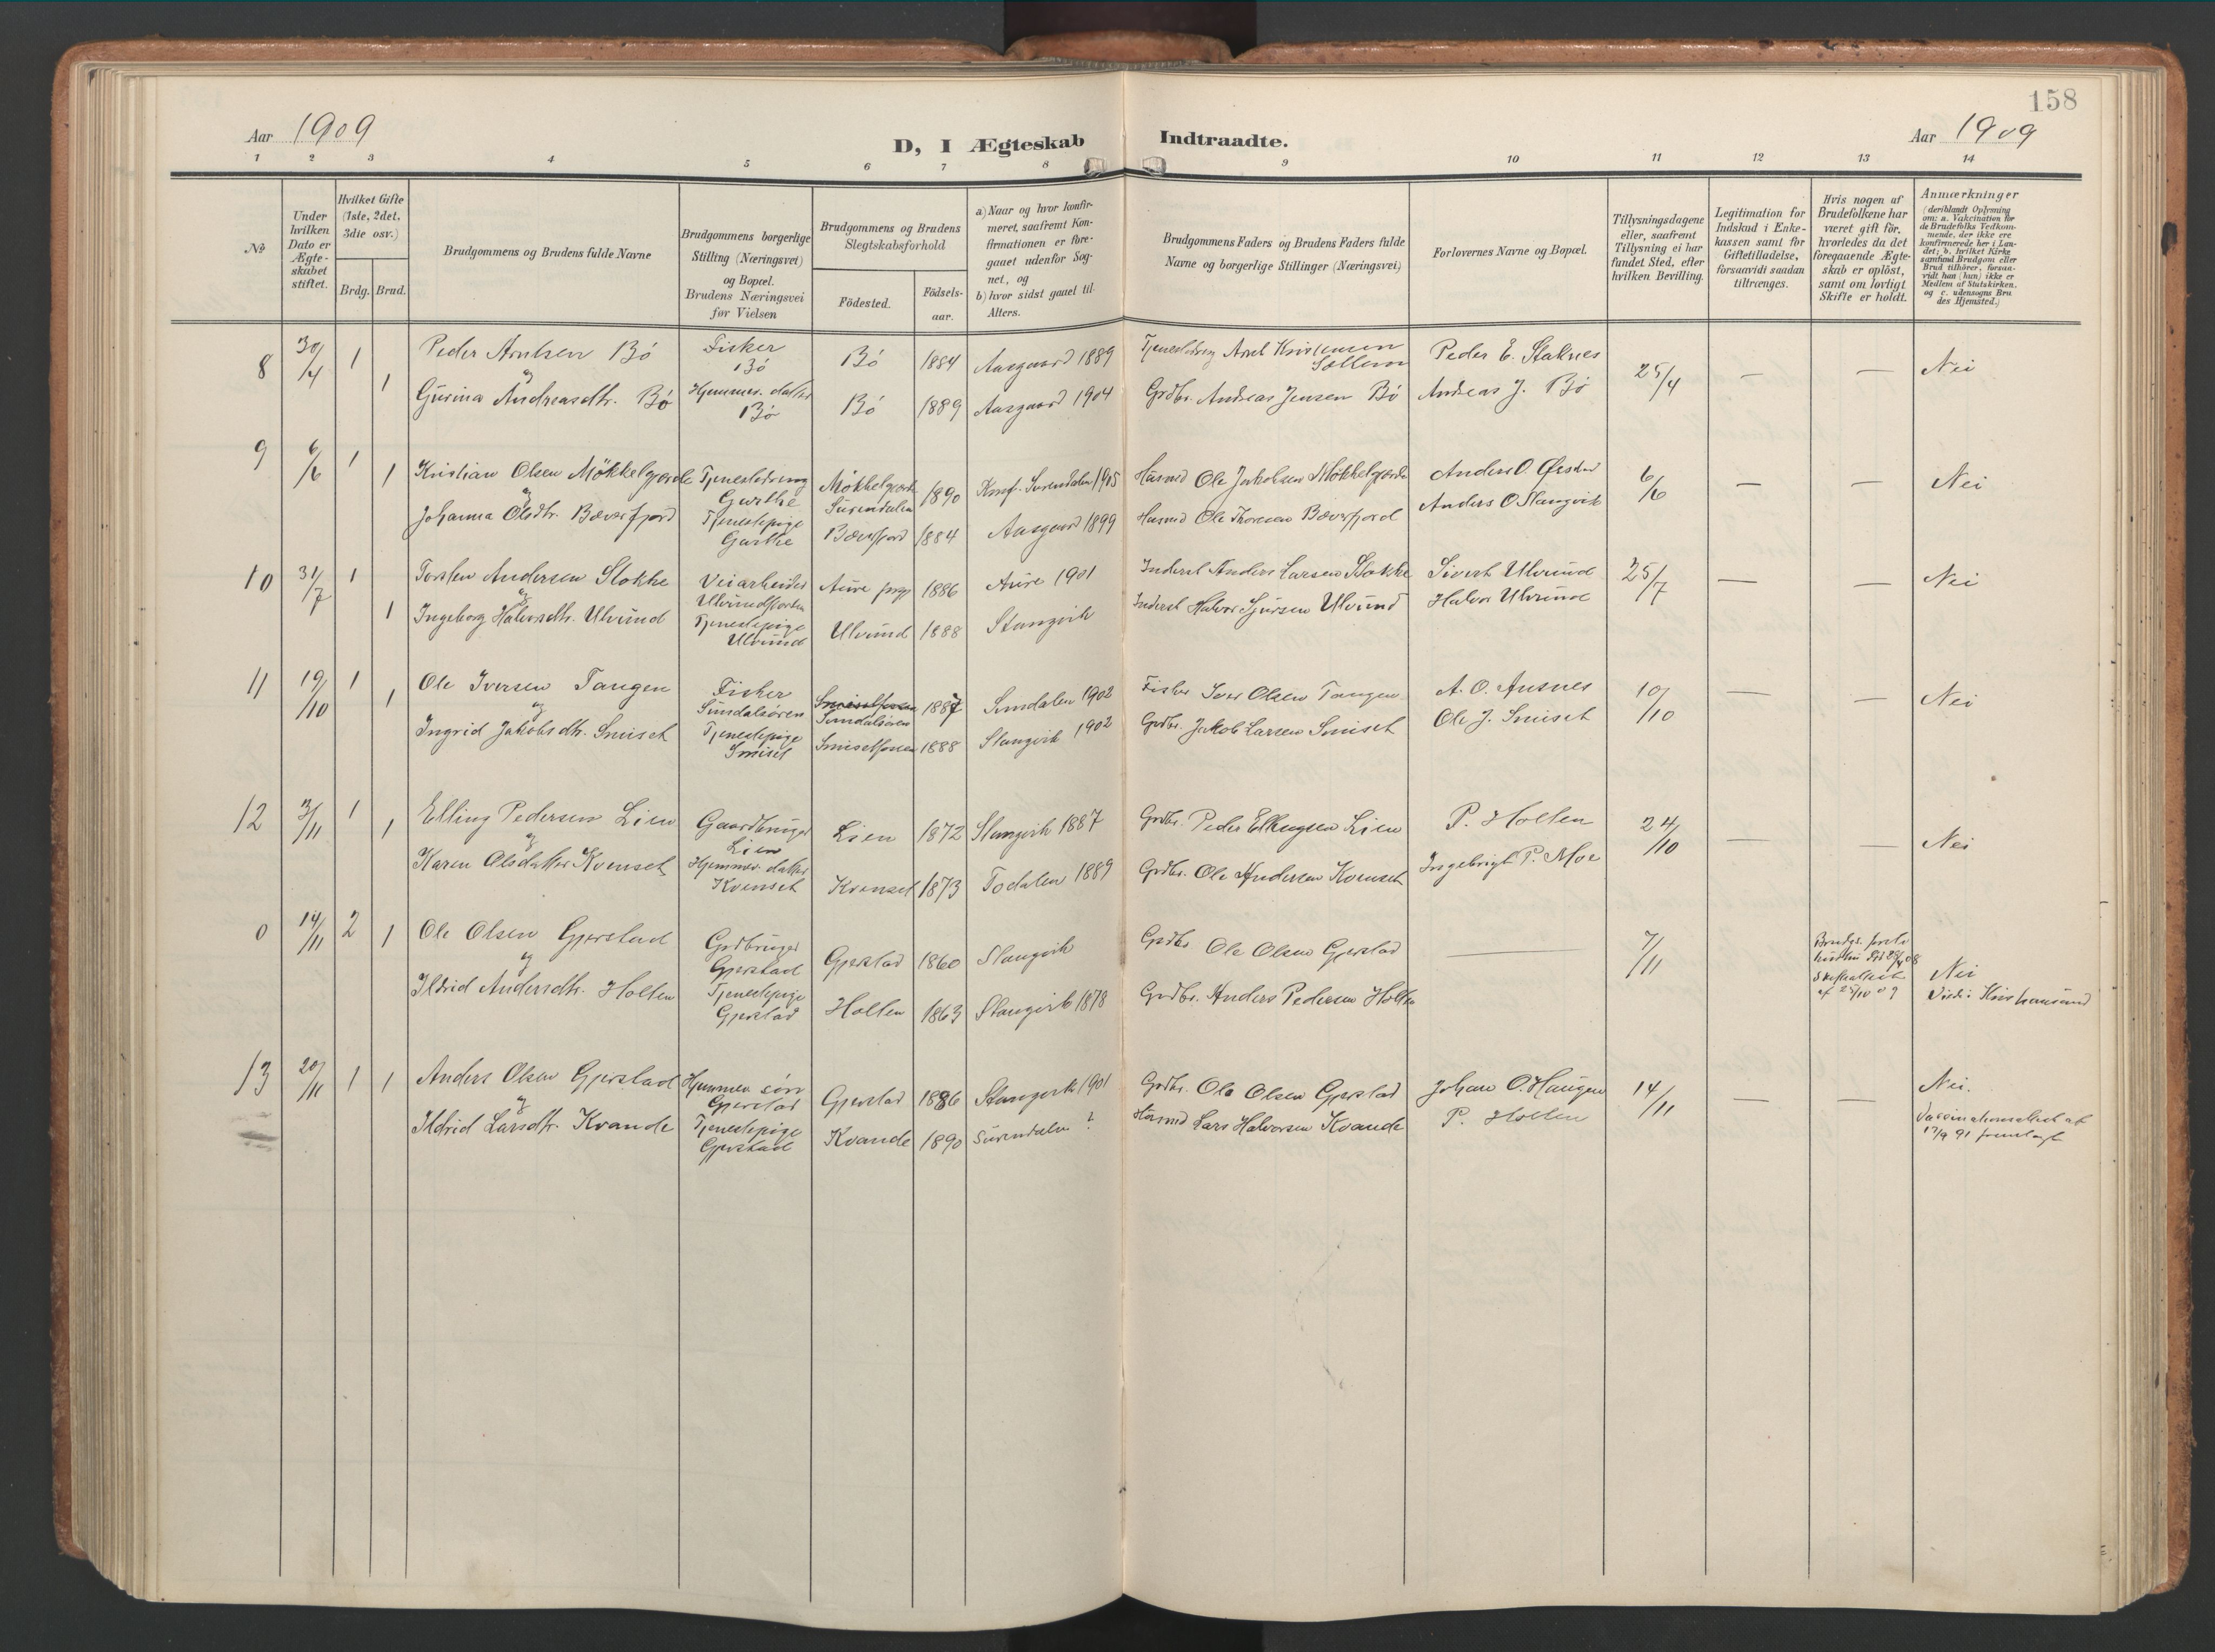 158
Aar 1909
D, I Ægteskab Indtraadte.
Aar 1909
1 2 3 4 5 6 7 8 9 10 11 12 13 14
No
Under hvilken Dato er Ægteskabet stiftet.
Hvilket Gifte (1ste, 2det, 3die osv.)
Brdg. Brud.
Brudgommens og Brudens fulde Navne
Brudgommens borgerlige Stilling (Næringsvei) og Bopæl. Brudens Næringsvei før Vielsen
Brudgommens og Brudens Slegtskabsforhold
Födested.
Födsels-aar.
a) Naar og hvor konfirmeret, saafremt Konfirmationen er foregaaet udenfor Sognet, og
b) hvor sidst gaaet til Alters.
Brudgommens Faders og Brudens Faders fulde Navne og borgerlige Stillinger (Næringsvei)
Forlovernes Navne og Bopæl.
Tillysningsdagene eller, saafremt Tillysning ei har fundet Sted, efter hvilken Bevilling.
Legitimation for Indskud i Enkekassen samt for Giftetilladelse, forsaavidt saadan tiltrænges.
Hvis nogen af Brudefolkene har været gift før, hvorledes da det foregaaende Ægteskab er oplöst, samt om lovligt Skifte er holdt.
Anmærkninger (deriblandt Oplysning om: a. Vakcination for de Brudefolks Vedkommende, der ikke ere konfirmerede her i Landet; b. hvilket Kirkesamfund Brudgom eller Brud tilhörer, forsaavidt han (hun) ikke er Medlem af Statskirken, og c. udensogns Brudes Hjemsted.)
8 30/4 1 Peder Arntsen Bö Fisker Bö Bö 1884 Aasgaard 1889 Tjenestedreng Arnt Kristensen Sollem Peder E. Staknes 25/4 — — Nei
og
1 Gurina Andreasdtr. Bö Hjemmev. datter Bö Bö 1889 Aasgaard 1904 Grdbr. Andreas Jensen Bö Andreas J. Bö
9 6/6 1 Kristian Olsen Mökkelgjerde Tjenestedreng Gjerthe Mökkelgjerde Surendalen 1890 Konf. Surendalen 1905 Husmd Ole Jakobsen Mökkelgjerde Anders O. 6/6 — — Nei
og
1 Johanna Olsdtr. Bæverfjord Tjenestepige Bæverfjord 1884 Aasgaard 1899 Husmd Ole Thoresen Bæverfjord Anders O Stangvik
10 31/7 1 Torsten Andersen Stokke Veiarbeider Ulvundfjorden Aure prgj 1886 Aure 1901 Inderst Anders Larsen Stokke Sivert Ulvund 25/7 — — Nei
og
1 Ingeborg Halvorsdtr. Ulvund Tjenestepige Ulvund Ulvund 1888 Stangvik Inderst Halvor Sjursen Ulvund Halvor Ulvund
11 19/10 1 Ole Iversen Tangen Fisker Sundalsören Sundalsören 1887 Sundalen 1902 Fisker Iver Olsen Tangen A. O. Ansnes 10/10 — — Nei
og
1 Ingrid Jakobsdtr. Smiset Tjenestepige Smiset 1888 Stangvik 1902 Grdbr. Jakob Larsen Smiset Ole J. Smiset
12 3/11 1 Elling Pedersen Lien Gaardbruger Lien Lien 1872 Stangvik 1887 Grdbr. Peder Ellingsen Lien P. Holten 24/10 — — Nei
og
1 Karen Olsdatter Kvenset Hjemmev. datter Kvenset Kvenset 1873 Todalen 1889 Grdbr. Ole Andersen Kvenset Ingebrigt P. Moe
0 14/11 2 Ole Olsen Gjerstad Grdbruger Gjerstad Gjerstad 1860 Stangvik Grdbr Ole Olsen Gjerstad — 7/11 Brudgs. første hustru död 08 Skifteattest af 25/10 09 Nei
og
1 Ildrid Andersdtr. Holten Tjenestepige Gjerstad Holten 1863 Stangvik 1878 Grdbr. Anders Pedersen Holten Viede i Kristiansund
13 20/11 1 Anders Olsen Gjerstad Hjemmev. sön Gjerstad Gjerstad 1886 Stangvik 1901 Grdbr. Ole Olsen Gjerstad Johan O. Haugen 14/11 — — Nei.
og
1 Ildrid Larsdtr. Kvande Tjenestepige Gjerstad Kvande 1890 Surendalen ? Husmd Lars Halvorsen Kvande P. Holten Vaccinationsattest af 17/9 91 fremlagt